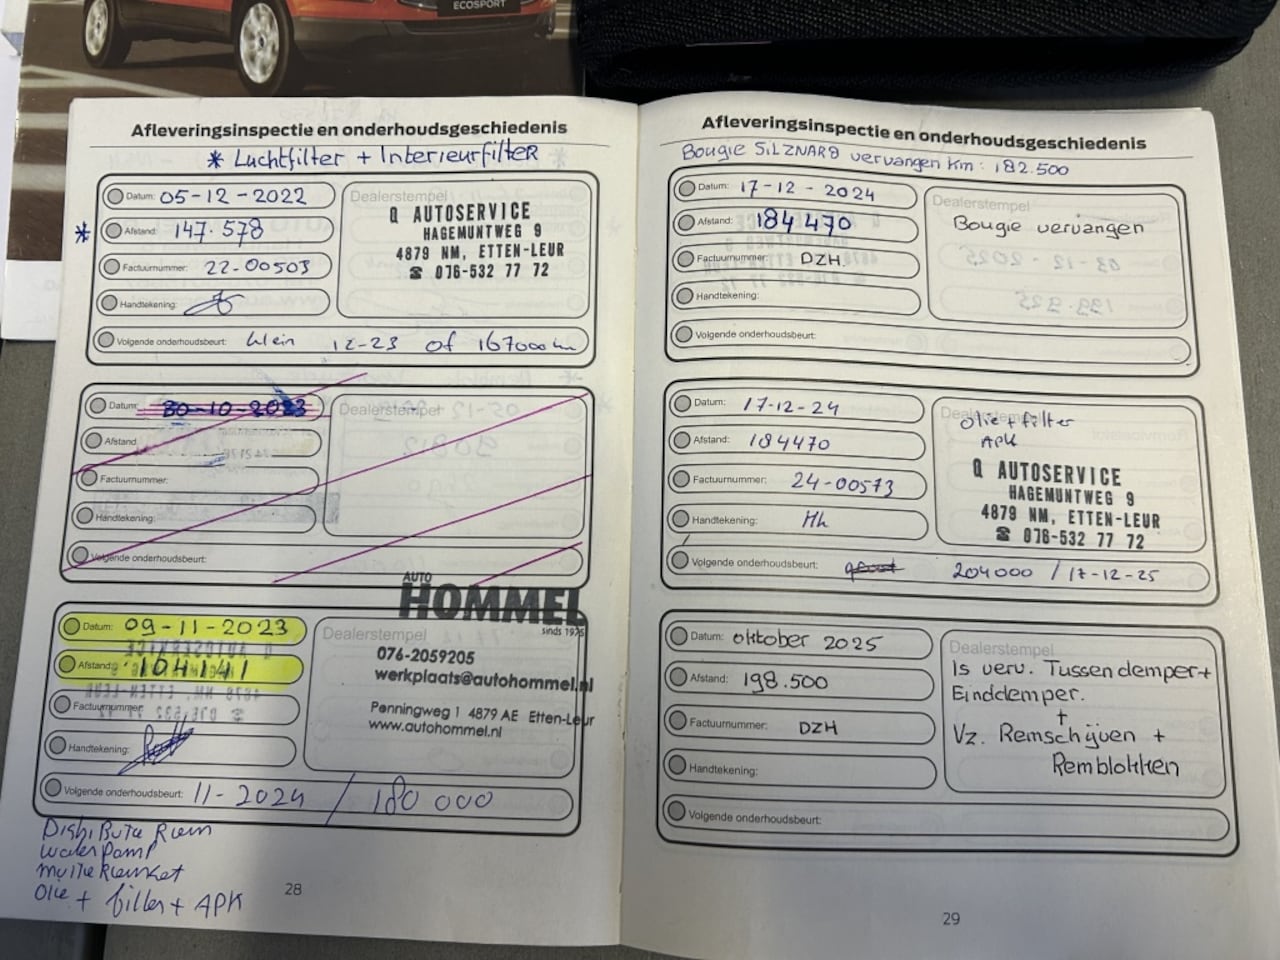 ECOSPORT
Afleveringsinspectie en onderhoudsgeschiedenis
* Luchtfilter + Interieurfilter
Datum: 05-12-2022
* Afstand: 147.578
Factuurnummer: 22-00503
Handtekening:
Dealerstempel
Q AUTOSERVICE
HAGEMUNTWEG 9
4879 NM, ETTEN-LEUR
☎ 076-532 77 72
Volgende onderhoudsbeurt: klein 12-23 of 167000 km
Datum: 30-10-2023
Afstand:
Factuurnummer:
Handtekening:
Dealerstempel
Volgende onderhoudsbeurt:
AUTO
HOMMEL
sinds 1975
Datum: 09-11-2023
Afstand: 104141
Factuurnummer:
Handtekening:
Dealerstempel
076-2059205
werkplaats@autohommel.nl
Penningweg 1 4879 AE Etten-Leur
www.autohommel.nl
Volgende onderhoudsbeurt: 11-2024 / 180 000
Distributie Riem
waterpomp
multieriemket
Olie + filter + APK
28
Afleveringsinspectie en onderhoudsgeschiedenis
Bougie SILZNAR8 vervangen Km: 182.500
Datum: 17-12-2024
Afstand: 184470
Factuurnummer: DZH.
Handtekening:
Dealerstempel
Bougie vervangen
Volgende onderhoudsbeurt:
Datum: 17-12-24
Afstand: 184470
Factuurnummer: 24-00573
Handtekening:
Dealerstempel
Olie + filter
APK
Q AUTOSERVICE
HAGEMUNTWEG 9
4879 NM, ETTEN-LEUR
☎ 076-532 77 72
Volgende onderhoudsbeurt: 204000 / 17-12-25
Datum: oktober 2025
Afstand: 198.500
Factuurnummer: DZH
Handtekening:
Dealerstempel
Is verv. Tussendemper +
Einddemper.
+
Vz. Remschijven +
Remblokken
Volgende onderhoudsbeurt:
29